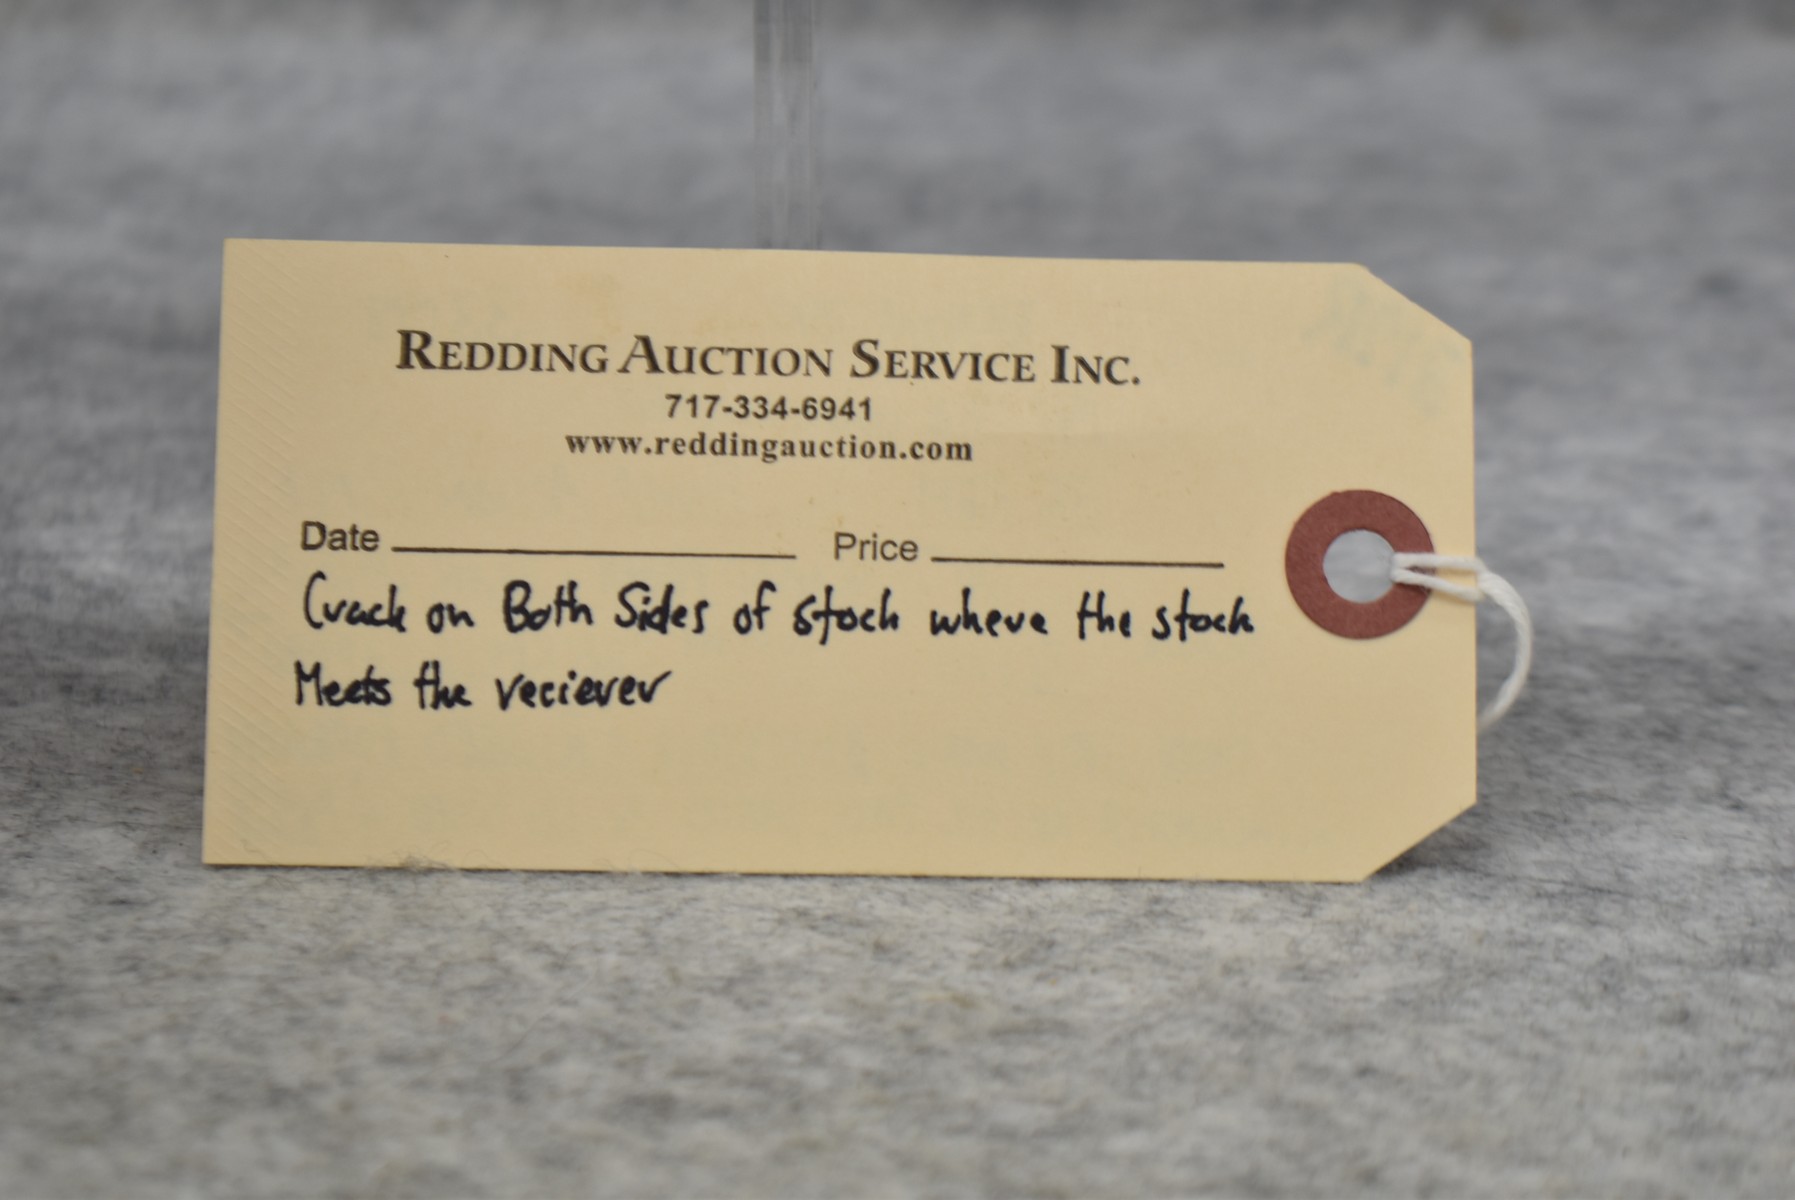 REDDING AUCTION SERVICE INC.
717-334-6941
www.reddingauction.com
Date Price
Crack on Both Sides of stock where the stock
Meets the reciever